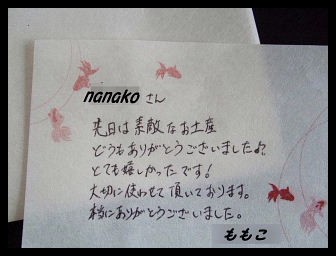 nanako さん
先日は素敵なお土産
どうもありがとうございました♪
とても嬉しかったです!
大切に使わせて頂いております。
本当にありがとうございました。
ももこ